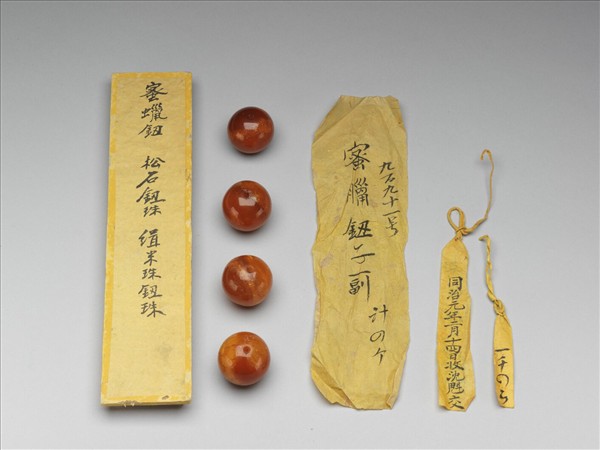 蜜蠟鈕 松石鈕珠 緝米珠鈕珠
九百九十一号
蜜臘鈕子一副
計四个
同治元年二月十四日收沈魁交